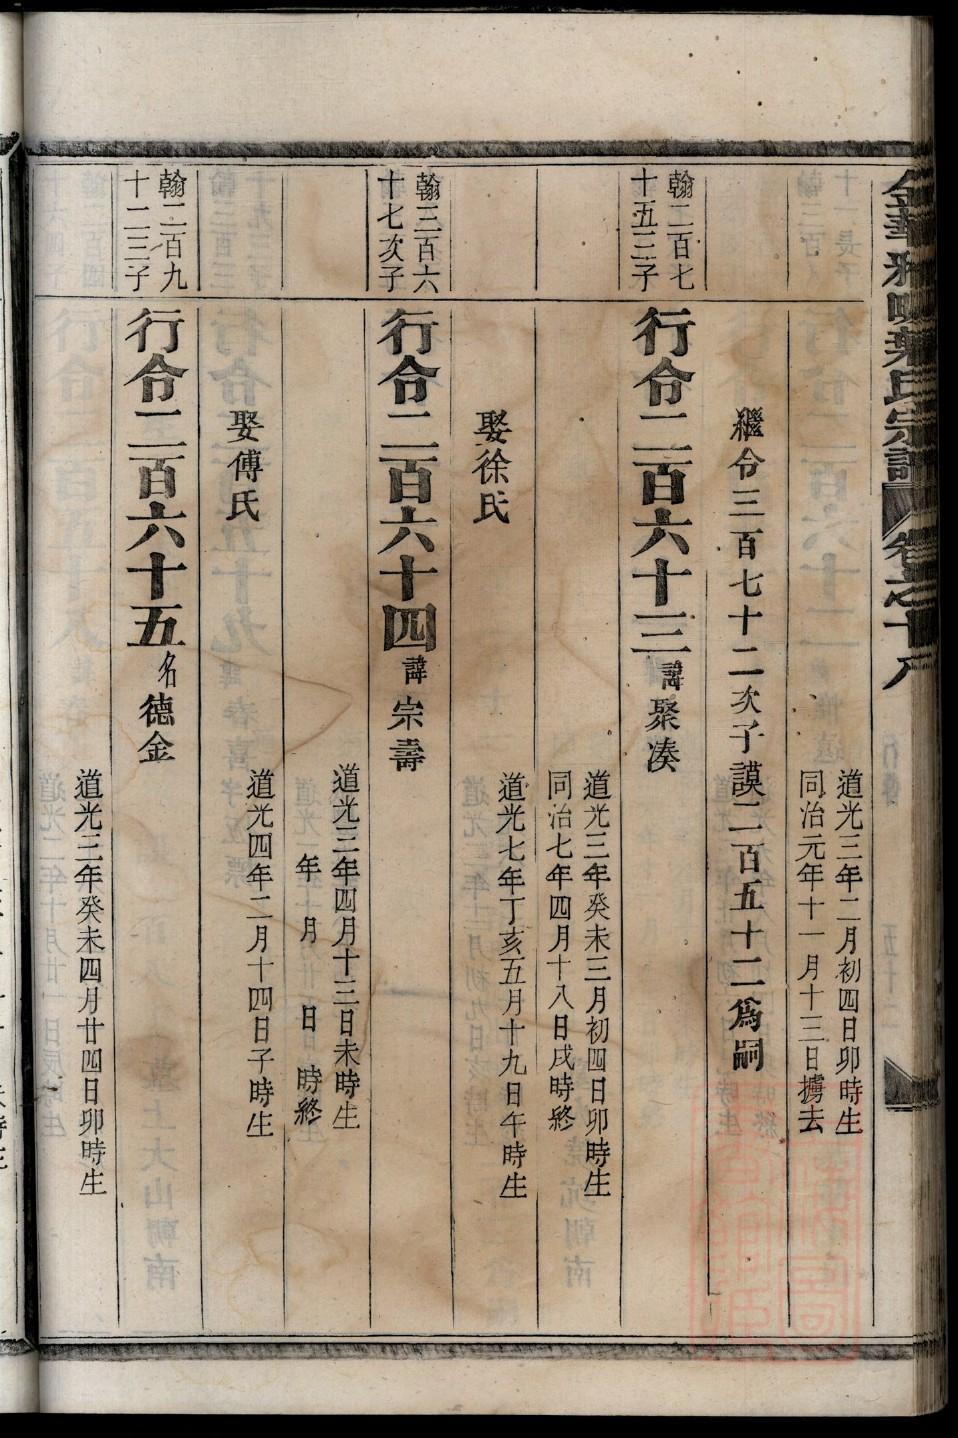 金華雅畈葉氏宗譜 卷之十八
道光三年二月初四日卯時生
同治元年十一月十三日擄去
繼令三百七十二次子謨二百五十二為嗣
翰二百七
十五三子
行令二百六十三諱聚湊
道光三年癸未三月初四日卯時生
同治七年四月十八日戌時終
娶徐氏
道光七年丁亥五月十九日午時生
翰三百六
十七次子
行令二百六十四諱宗壽
道光三年四月十三日未時生
年 月 日 時終
娶傅氏
道光四年二月十四日子時生
翰二百九
十二三子
行令二百六十五名德金
道光三年癸未四月廿四日卯時生